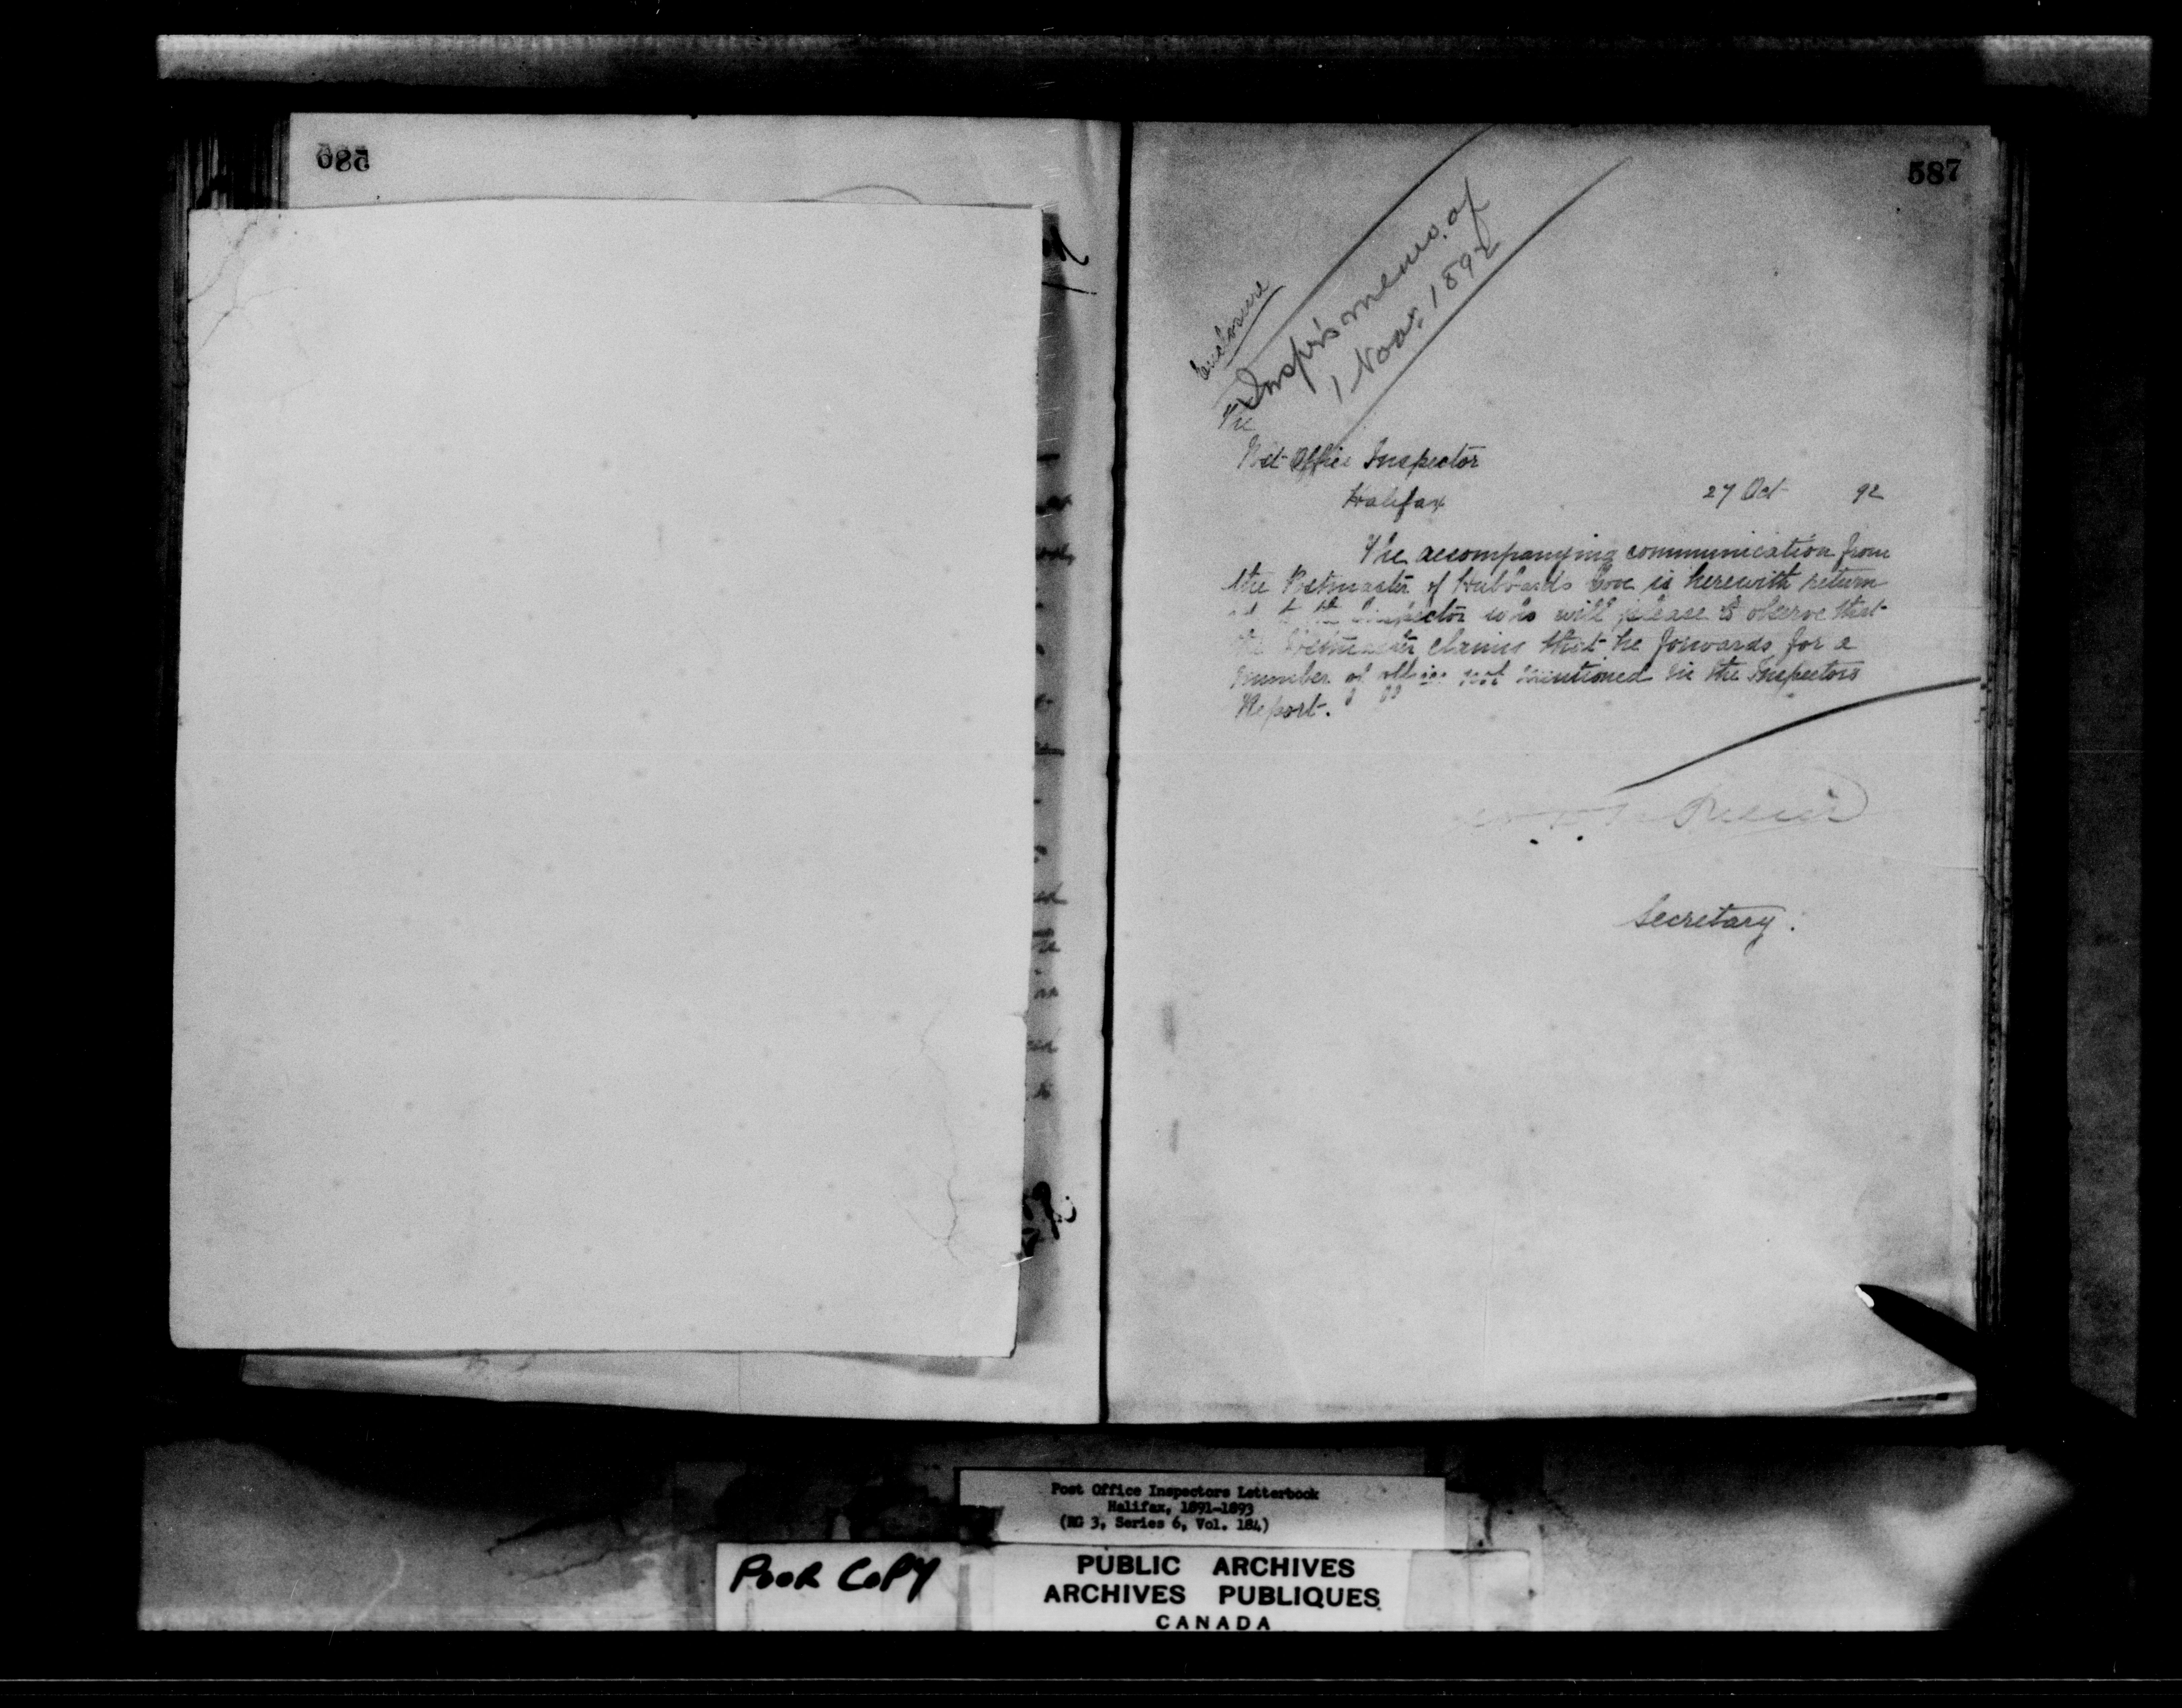 587
Enclosure
Inspr's memo. of
1 Novr. 1892
The
Post Office Inspector
Halifax
27 Oct 92
The accompanying communication from
the Postmaster of Hubbards Cove is herewith return
ed to the Inspector who will please to observe that
the Postmaster claims that he forwards for a
number of offices not mentioned in the Inspectors
Report.
Secretary.
Post Office Inspectors Letterbook
Halifax, 1891-1893
(RG 3, Series 6, Vol. 184)
POOR COPY
PUBLIC ARCHIVES
ARCHIVES PUBLIQUES
CANADA